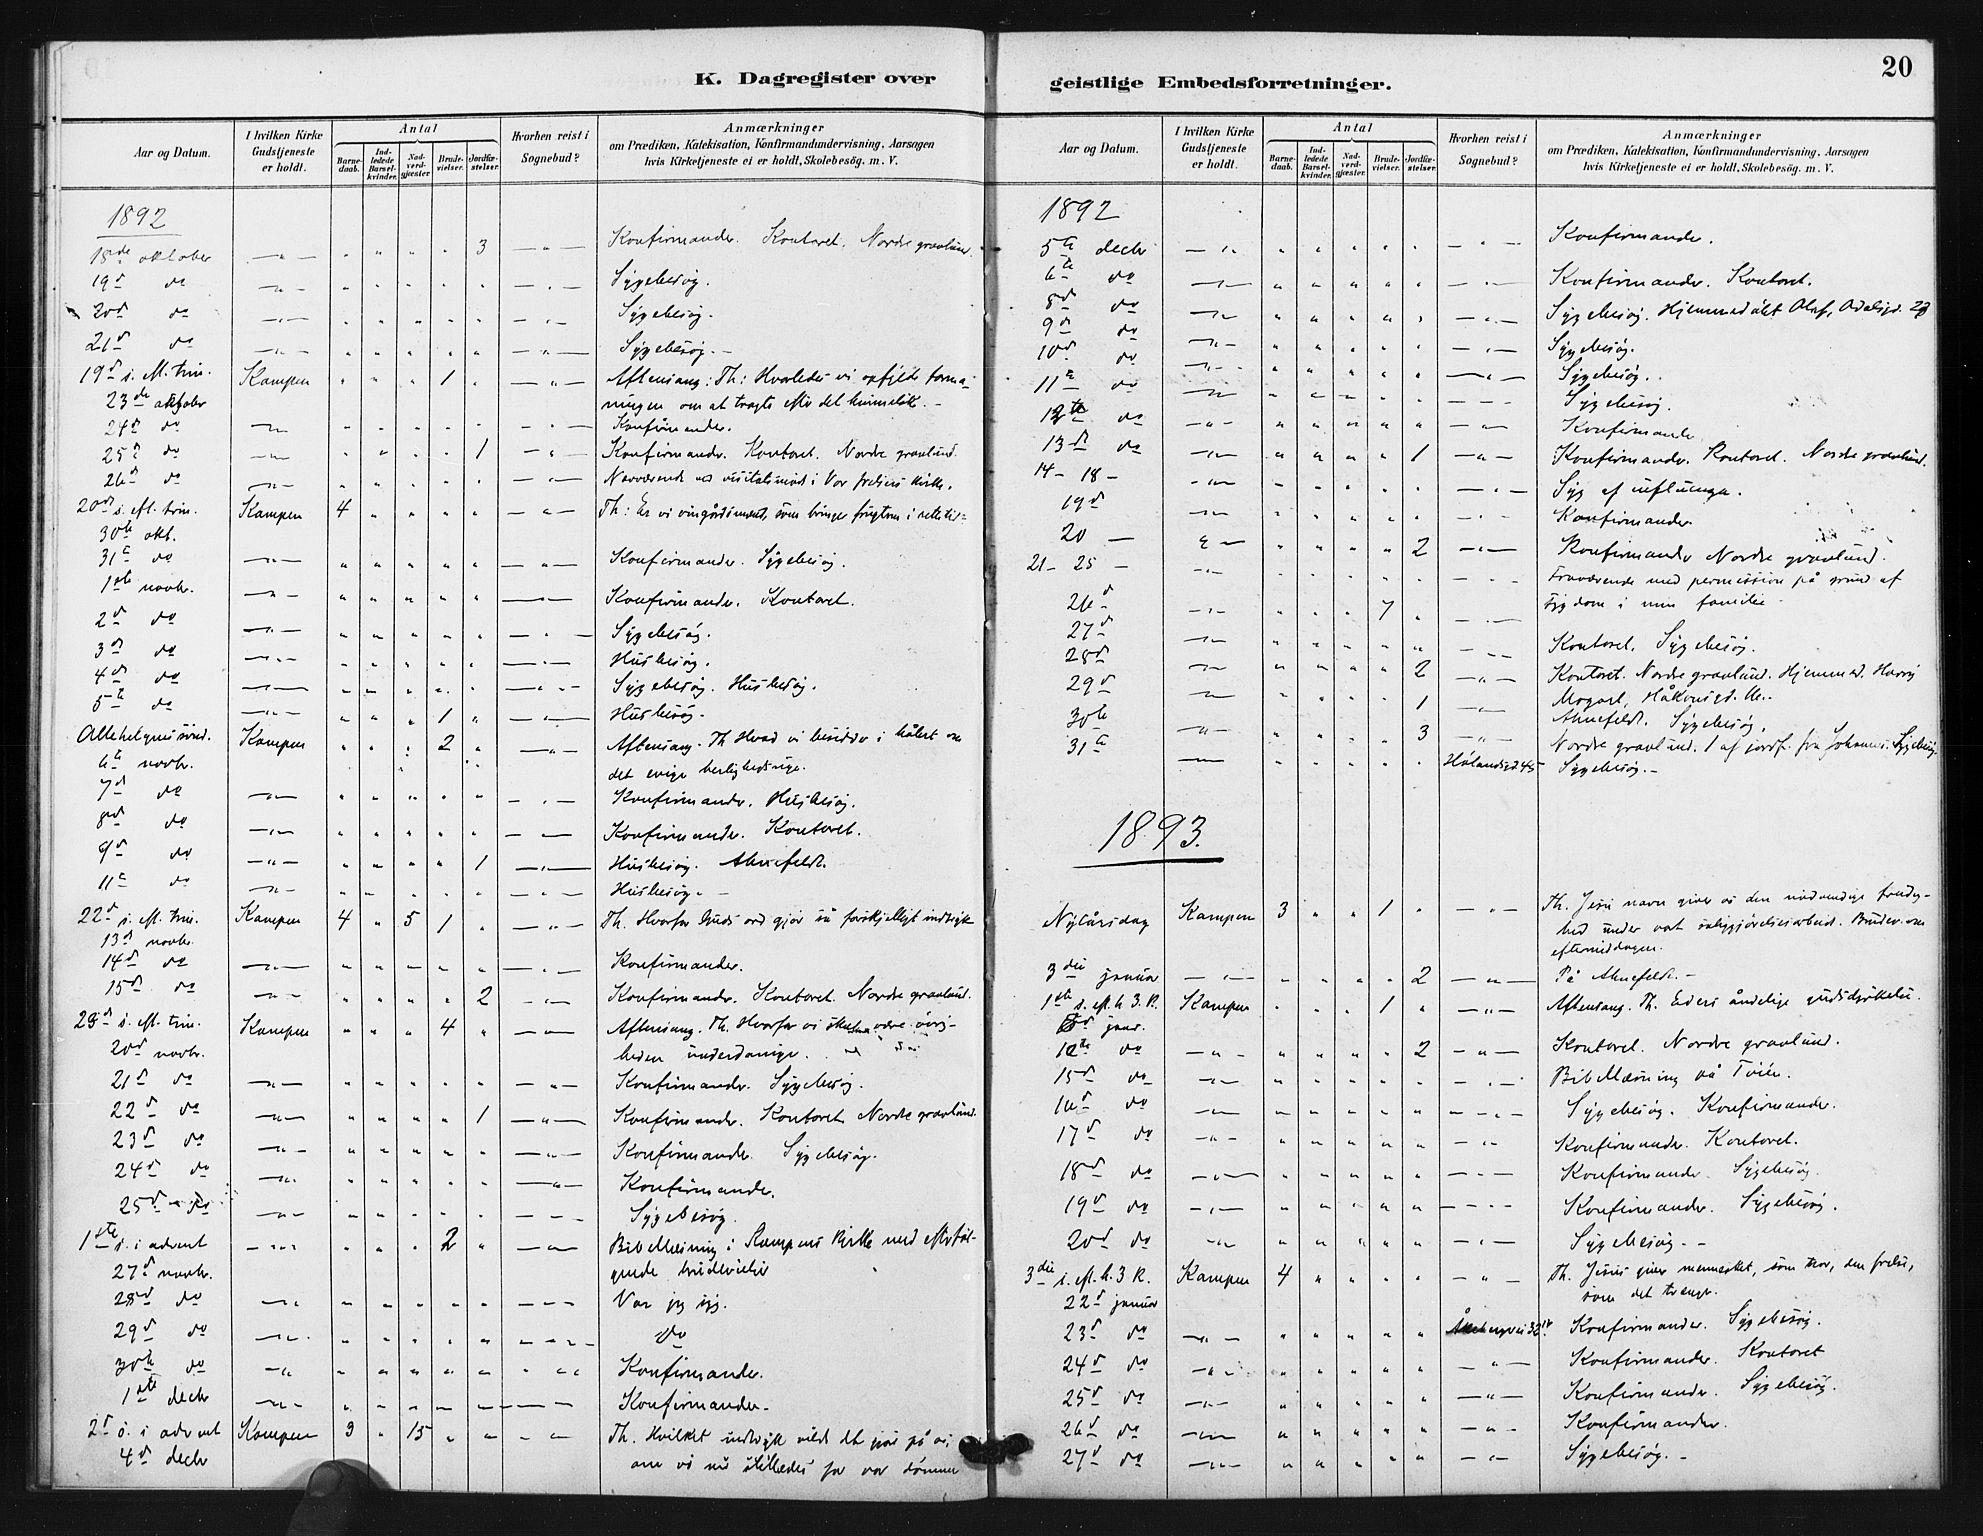 K. Dagregister over
Aar og Datum.
I hvilken Kirke Gudstjeneste er holdt.
Antal
Barne-daab.
Ind-ledede Barsel-kvinder.
Nad-verd-gjæster.
Brude-vielser.
Jordfæ-stelser.
Hvorhen reist i Sognebud?
Anmærkninger
om Prædiken, Katekisation, Konfirmandundervisning, Aarsagen
hvis Kirketjeneste ei er holdt, Skolebesög. m. V.
1892
18de oktober 3 Konfirmander. Kontoret. Nordre gravlund.
19d do Sygebesøg.
20d do Sygebesøg.
21d do Sygebesøg. -
19d s. ef. trin. Kampen 1 Aftensang: Th: Hvorledes vi opfylde forma-
23de oktober ningen om at tragte efter det himmelske. -
24d do Konfirmander.
25d do 1 Konfirmander. Kontoret. Nordre gravlund.
26d do Nærværende ved visitatsmøde i Vor frelsers kirke.
20d s. ef. trin. Kampen 4 Th: Er vi vingårdsmænd, som bringer frugten i rette tid
30te okt.
31te do Konfirmander. Sygebesøg.
1ste novbr. Konfirmander. Kontoret.
2d do Sygebesøg.
3d do Husbesøg.
4d do Sygebesøg. Husbesøg.
5te do 1 Husbesøg.
Allehelgens sønd. Kampen 2 Aftensang. Th Hvad vi besidder i håbet om
6te novbr. det evige herligheds rige.
7d do Konfirmander. Husbesøg.
8d do Konfirmander. Kontoret.
9d do 1 Husbesøg. Ahnefeldt.
11te do Husbesøg. -
22d s. ef. trin. Kampen 4 5 1 Th. Hvorfor Guds ord gjør så forskjelligt indtryk
13d novbr.
14d do Konfirmander.
15d do 2 Konfirmander. Kontoret. Nordre gravlund.
23d s. ef. trin. Kampen 4 Aftensang. Th. Hvorfor vi skulle være øvrig-
20d novbr. heden underdanige.
21d do Konfirmander. Sygebesøg.
22d do 1 Konfirmander. Kontoret. Nordre gravlund.
23d do Konfirmander. Sygebesøg.
24d do Konfirmander.
25d do Sygebesøg.
1ste s. i advent 2 Bibellæsning i Kampens kirke med efterføl-
27d novbr. gende brudevielse
28d do Var jeg syg.
29d do do
30te do Konfirmander.
1ste decbr Konfirmander.
2d s. i advent Kampen 9 15 Th. Hvilket indtryk vilde det gøre på os,
4d decbr om vi nu stilledes for vor dommer
geistlige Embedsforretninger.
20
Aar og Datum.
I hvilken Kirke Gudstjeneste er holdt.
Antal
Barne-daab.
Ind-ledede Barsel-kvinder.
Nad-verd-gjæster.
Brude-vielser.
Jordfæ-stelser.
Hvorhen reist i Sognebud?
Anmærkninger
om Prædiken, Katekisation, Konfirmandundervisning, Aarsagen
hvis Kirketjeneste ei er holdt, Skolebesög. m. V.
1892
5te decbr Konfirmander.
6te do Konfirmander. Kontoret.
8d do Sygebesøg. Hjemmedøbt Olaf,
9d do Sygebesøg.
10d do Sygebesøg.
11te do Sygebesøg.
12te do Konfirmander
13d do 1 Konfirmander. Kontoret. Nordre gravlund.
14 - 18 - Syg af influenza.
19d Konfirmander
20 - 2 Konfirmander Nordre gravlund.
21 - 25 - Fraværende med permission på grund af
sygdom i min familie
26d 7
27d Kontoret. Sygebesøg.
28d 2 Kontoret. Nordre gravlund. Hjemmed. Harry
29d 1 Ahnefeldt. Sygebesøg.
30te 3 Nordre gravlund. 1 af jordf. fra Johannes. Sygebesøg.
31te Sygebesøg. -
1893.
Nytårsdag Kampen 3 1 Th. Jesu navn giver os den nødvendige
hed under vort saliggjørelsesarbeid. Brudev. om
eftermiddagen.
3die januar 2 På Ahnefeldt. -
1ste s. ef. h. 3 K. Kampen 1 Aftensang. Th. Eders åndelige gudsdyrkelse.
8d janr.
10de do 2 Kontoret. Nordre gravlund.
15d do Bibellæsning på Tøien.
16d do Sygebesøg. Konfirmander.
17d do Konfirmander. Kontoret.
18d do Konfirmander. Sygebesøg.
19d do Konfirmander. Sygebesøg.
20d do Sygebesøg. -
3die s. ef. h. 3 K. Kampen 4 Th. Jesus giver mennesket, som tror, den frelse,
22d januar som det trænger.
23d do Konfirmander. Sygebesøg.
24d do Konfirmander. Kontoret
25d do Konfirmander. Sygebesøg.
26d do Konfirmander.
27d do Sygebesøg. -